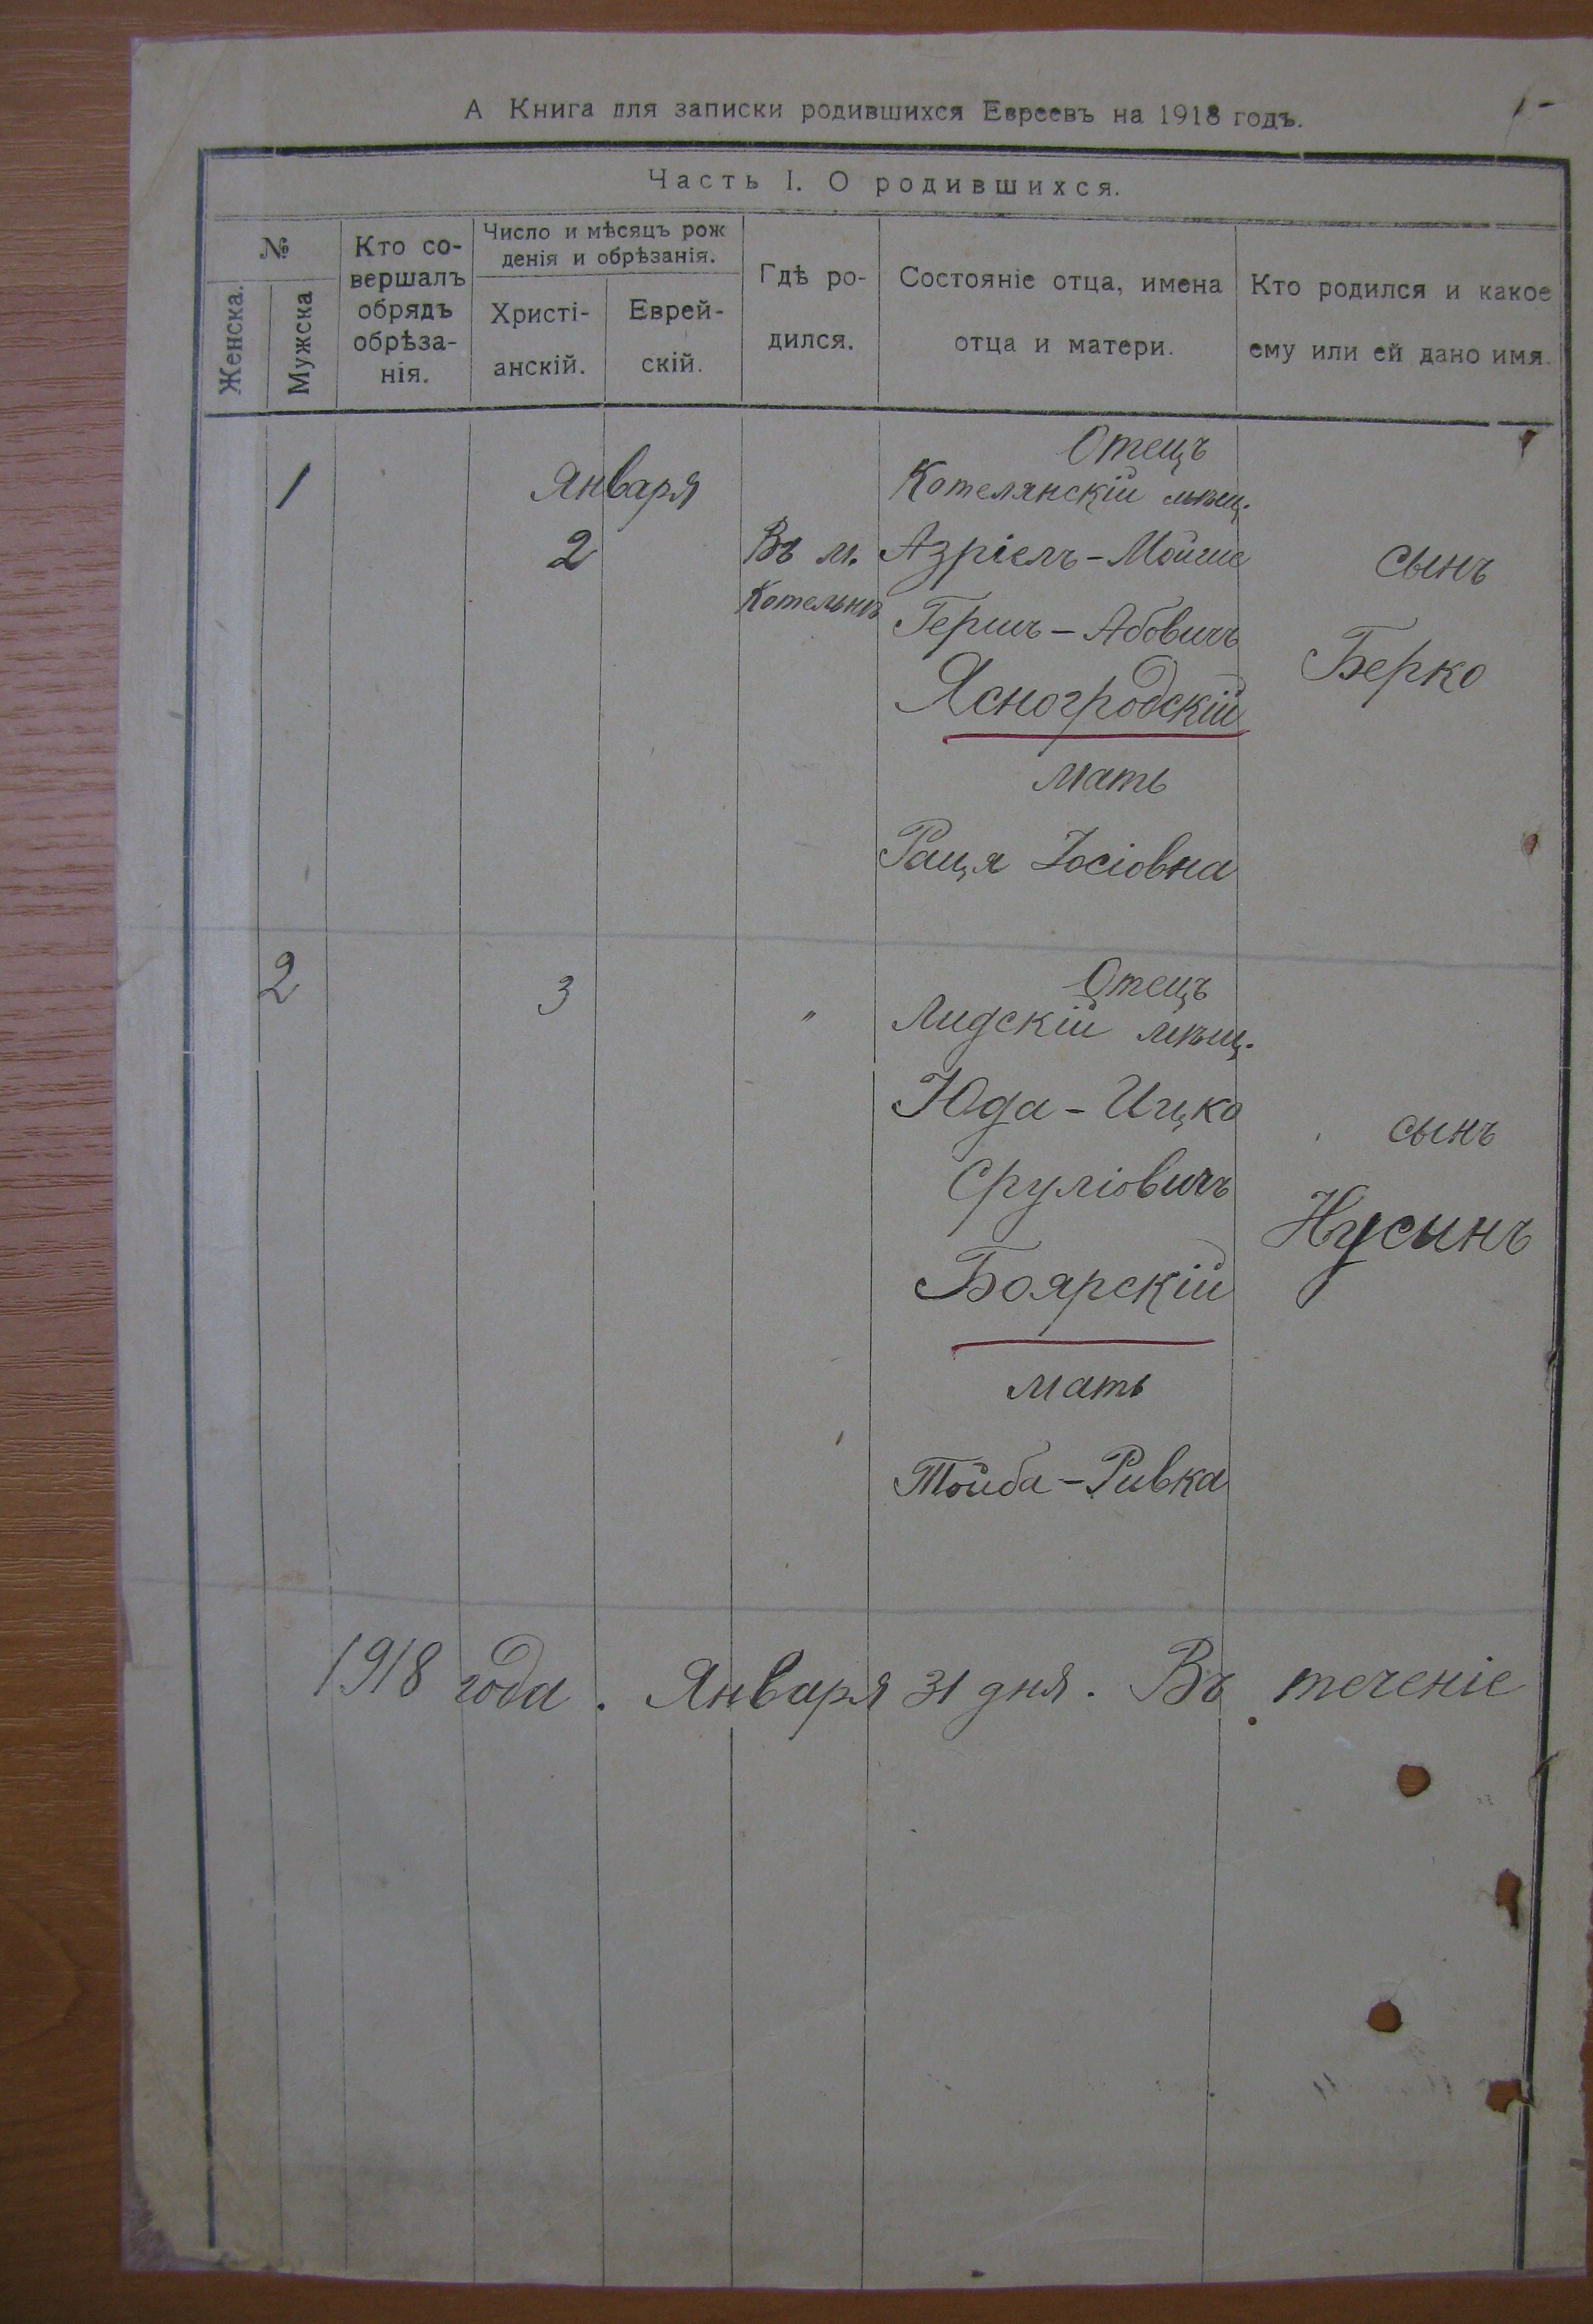 А Книга для записки родившихся Евреевъ на 1918 годъ.
Часть I. О родившихся.
№
Женска.
Мужска
Кто со-
вершалъ
обрядъ
обрѣза-
нія.
Число и мѣсяцъ рож
денія и обрѣзанія.
Христі-
анскій.
Еврей-
скій.
Гдѣ ро-
дился.
Состояніе отца, имена
отца и матери.
Кто родился и какое
ему или ей дано имя.
1
Января
2
Въ м.
Котельнѣ
Отецъ
Котелянскій мѣщ.
Азріелъ-Мойше
Гершъ-Абовичъ
Ясногродскій
мать
Раця Іосіовна
сынъ
Берко
2
3
"
Отецъ
Лидскій мѣщ.
Юда-Ицко
Сруліовичъ
Боярскій
мать
Тойба-Ривка
сынъ
Нусинъ
1918 года. Января 31 дня. Въ теченіе